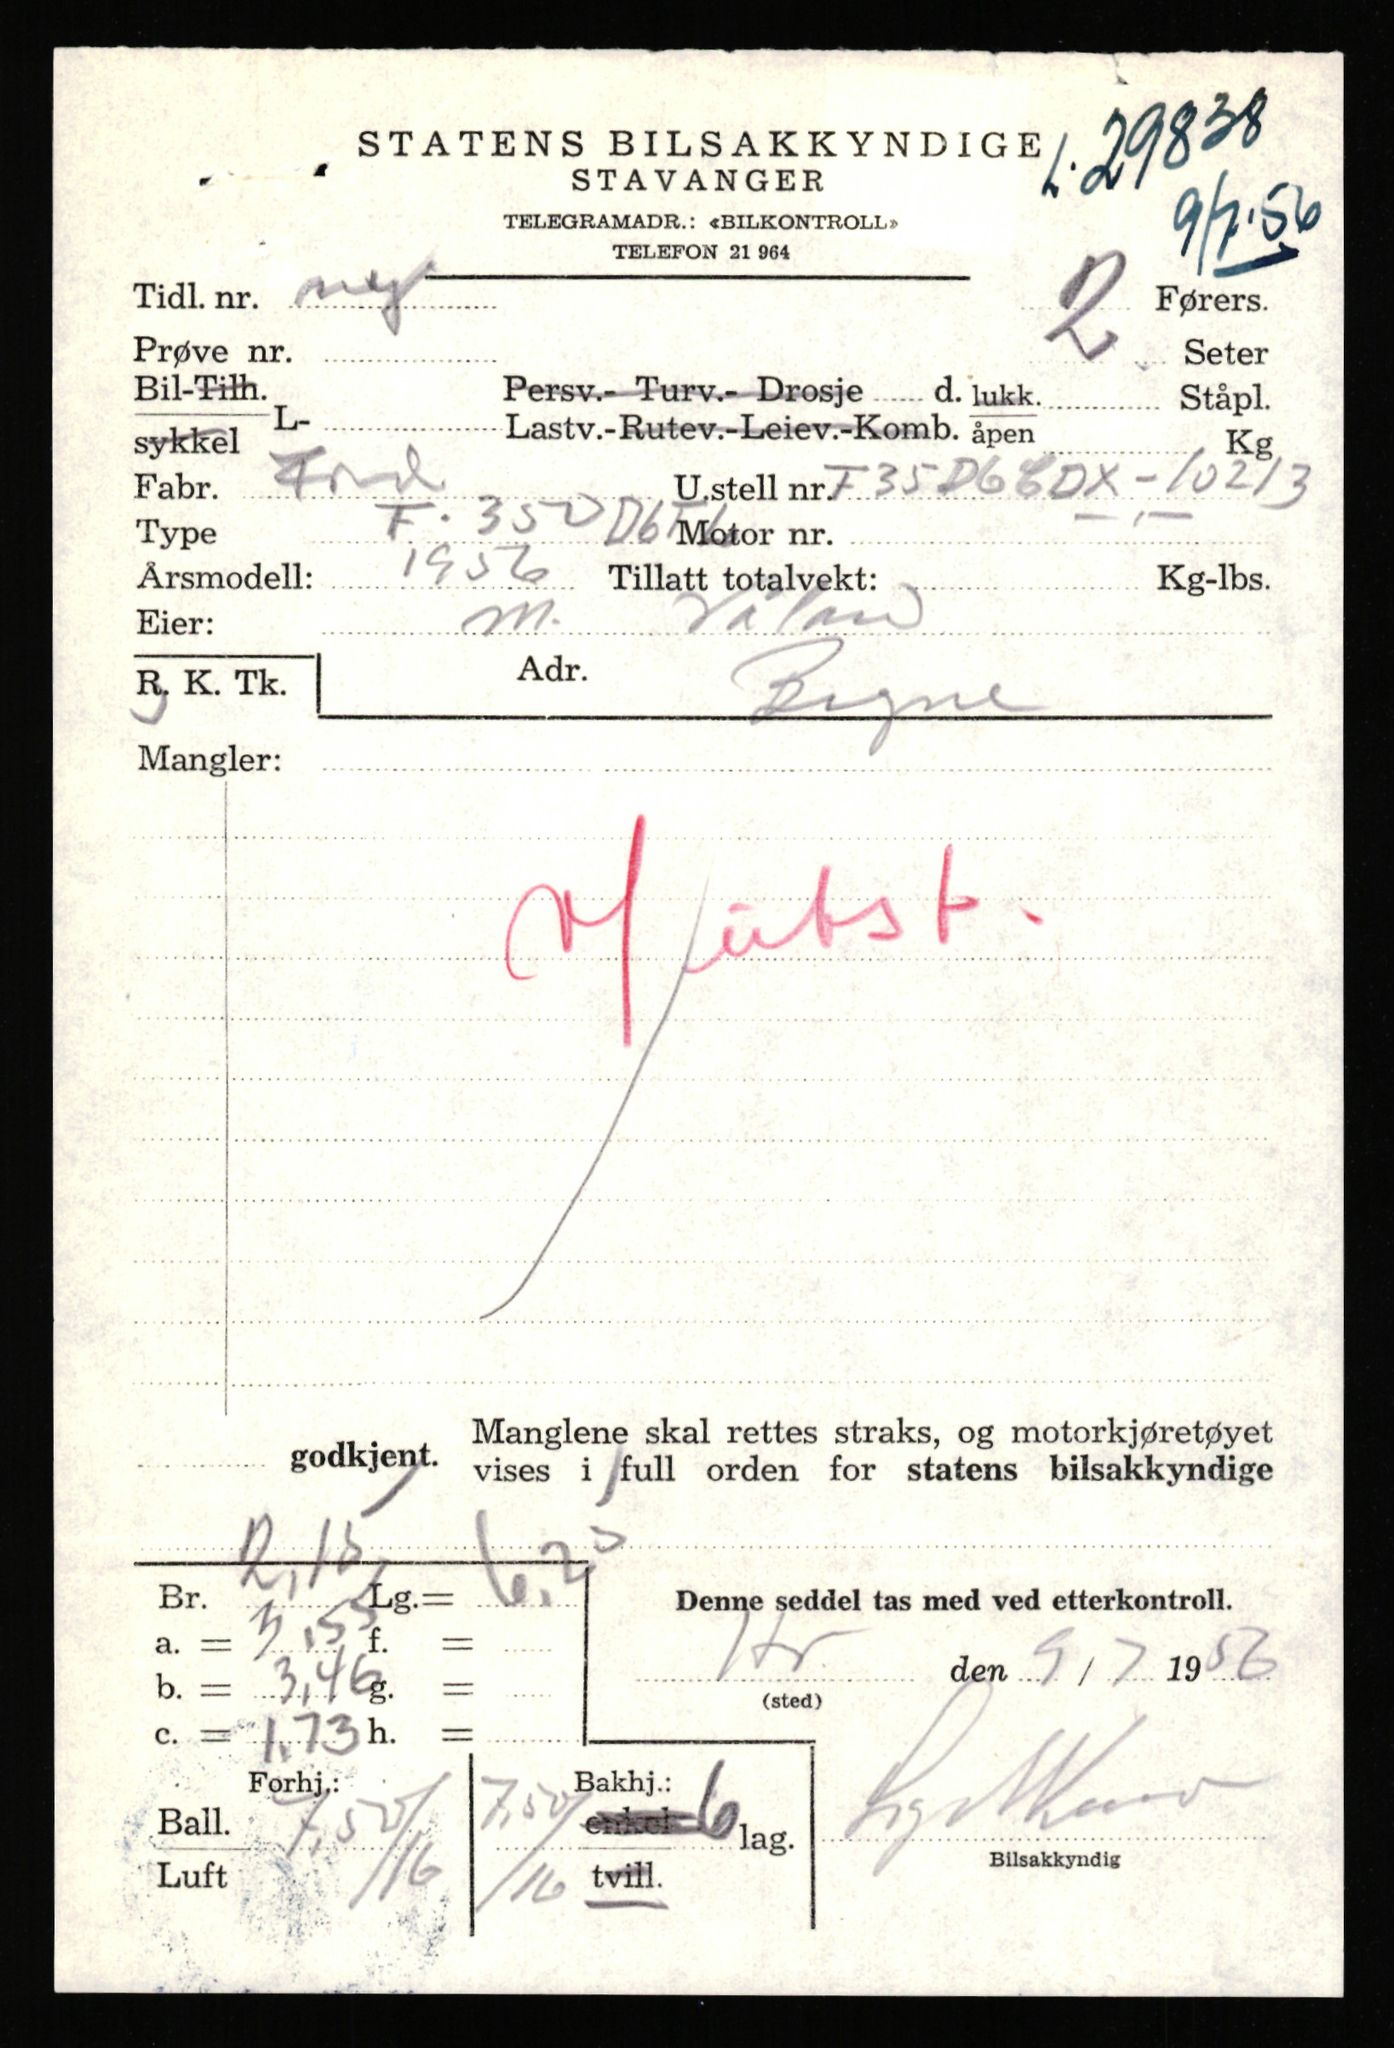 STATENS BILSAKKYNDIGE
STAVANGER
TELEGRAMADR.: «BILKONTROLL»
TELEFON 21 964
L. 29838
9/7.56
Tidl. nr. ny
2 Førers.
Prøve nr.
Seter
Bil-Tilh. Persv.- Turv.- Drosje d. lukk. Ståpl.
sykkel L- Lastv.-Rutev.-Leiev.-Komb. åpen Kg
Fabr. Ford U.stell nr. F35D6EDX-10213
Type F. 350 D6F6 Motor nr.
Årsmodell: 1956 Tillatt totalvekt: Kg-lbs.
Eier: M. Våland
R. K. Tk. Adr. Bryne
Mangler:
godkjent. Manglene skal rettes straks, og motorkjøretøyet
vises i full orden for statens bilsakkyndige
Br. 2,15 Lg.= 6,20
Denne seddel tas med ved etterkontroll.
a. = 3,55 f. =
den 9/7 1956
b. = 3,46 g. =
(sted)
c. = 1,73 h. =
Forhj.: Bakhj.:
Ball. 7,50/16 7,50/16 enkel 6 lag.
Luft tvill.
Bilsakkyndig